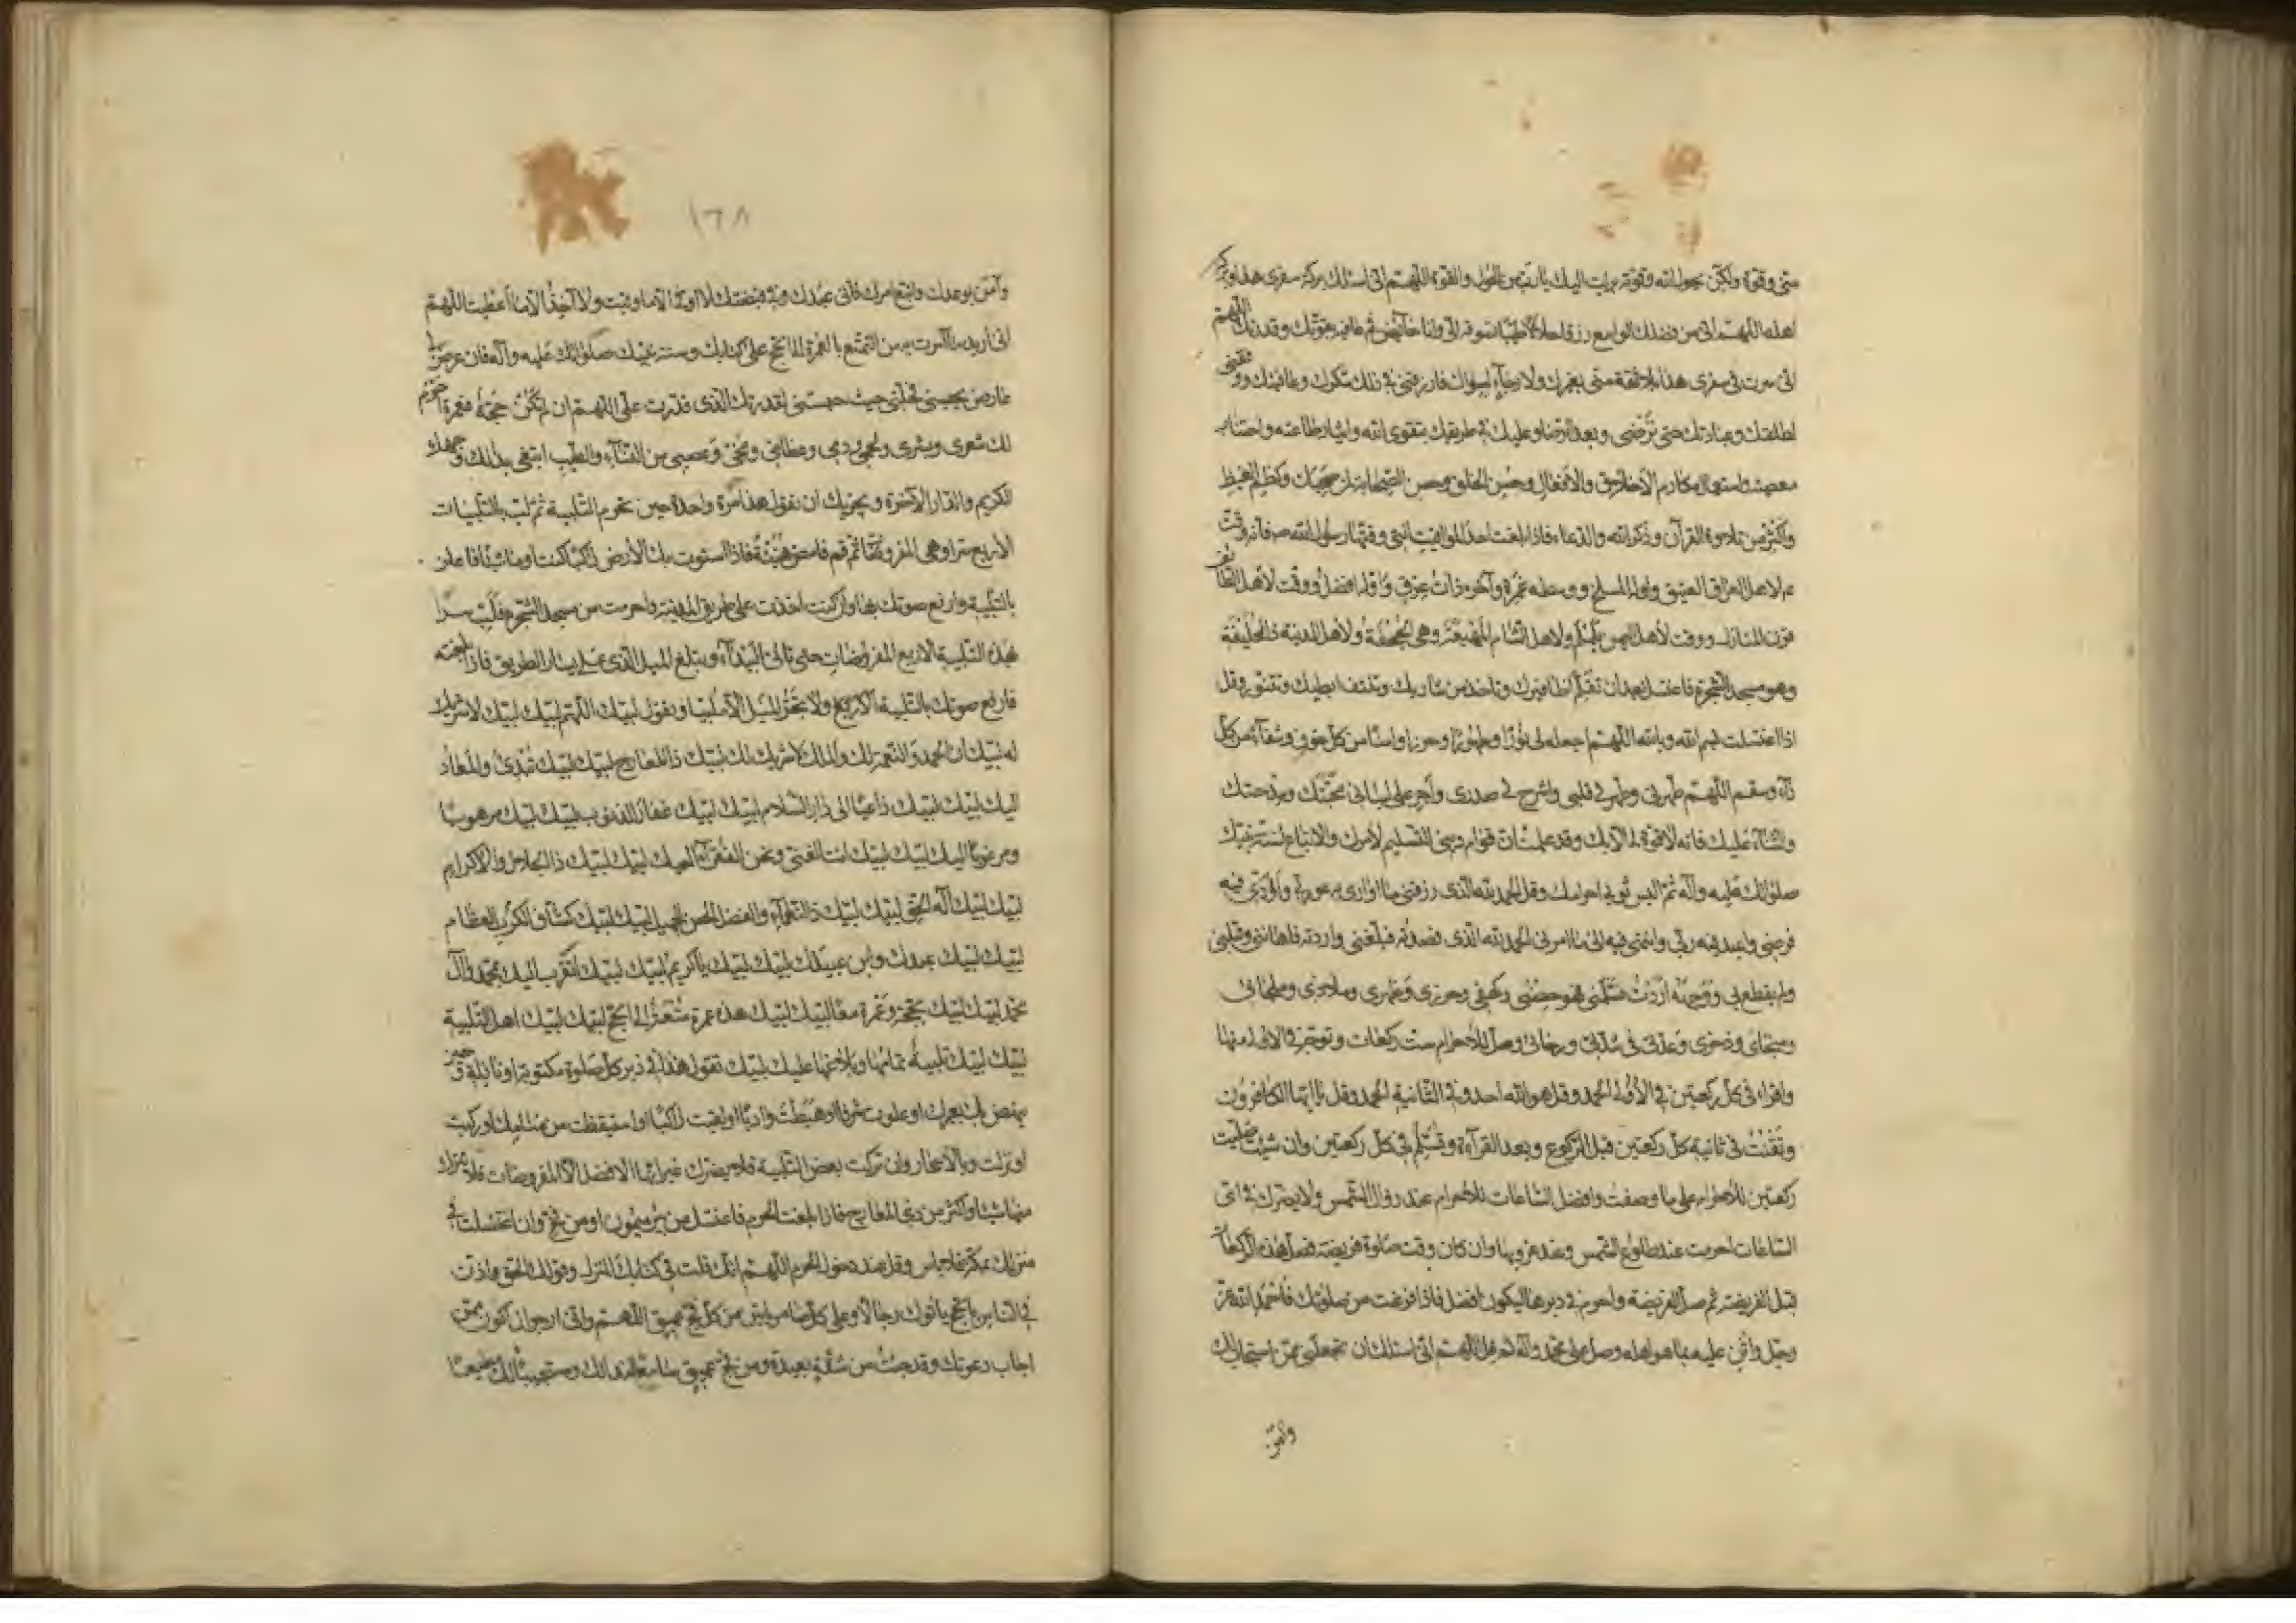 منى وقوة ولكن بحول الله وقوته برئت اليك يا رب من الحول والقوة اللهم انى اسئلك بركة سفرى هذا وبركة
اهله اللهم انى اسئلك من فضلك الواسع رزقا حلالا طيبا تسوقه الى وانا خائض فى عافية بقوتك وقدرتك اللهم
انى سرت فى سفرى هذا بلا ثقة منى بغيرك ولا رجاء لسواك فارزقنى فى ذلك شكرك وعافيتك ووفقنى
لطاعتك وعبادتك حتى ترضى وبعد الرضا وعليك فى طريقك بتقوى الله وايثار طاعته واجتناب
معصيته واستعمال مكارم الاخلاق والافعال وحسن الخلق وحسن الصحابة لمن صحبك وكظم الغيظ
واكثر من تلاوة القرآن وذكر الله والدعاء فاذا بلغت احد المواقيت التى وقتها رسول الله ص فانه وقت
لاهل العراق العقيق واوله المسلخ ووسطه غمرة وآخره ذات عرق واوله افضل ووقت لأهل الطائف
قرن المنازل ووقت لأهل اليمن يلملم ولاهل الشام المهيعة وهى الجحفة ولاهل المدينة ذا الحليفة
وهو مسجد الشجرة فاغتسل بعد ان تقلم اظافيرك وتاخذ من شاربك وتنتف ابطيك وتتنور وقل
اذا اغتسلت بسم الله وبالله اللهم اجعله لى نورا وطهورا وحرزا وامنا من كل خوف وشفاء من كل
داء وسقم اللهم طهرنى وطهر لى قلبى واشرح لى صدرى وأجر على لسانى محبتك ومدحتك
والثناء عليك فانه لا قوة لى الا بك وقد علمت ان قوام دينى التسليم لأمرك والاتباع لسنة نبيك
صلواتك عليه وآله ثم البس ثوبى احرامك وقل الحمد لله الذى رزقنى ما اوارى به عورتى واؤدى فيه
فرضى واعبد فيه ربى وانتهى فيه الى ما امرنى الحمد لله الذى قصدته فبلغنى واردته فاعاننى وقبلنى
ولم يقطع بى ووجهه اردت فسلمنى فهو حصنى وكهفى وحرزى وظهرى وملاذى وملجائى
ومنجاى وذخرى وعدتى فى شدتى ورخائى وصل للاحرام ست ركعات وتوجه فى الاولى منها
واقرأ فى كل ركعتين فى الأولى الحمد وقل هو الله احد وفى الثانية الحمد وقل يا ايها الكافرون
وتقنت فى ثانية كل ركعتين قبل الركوع وبعد القراءة وتسلم فى كل ركعتين وان شئت صليت
ركعتين للاحرام على ما وصفت وافضل الساعات للاحرام عند زوال الشمس ولا يضرك فى اى
الساعات احرمت عند طلوع الشمس وعند غروبها وان كان وقت صلوة فريضة فصل هذه الركعات
قبل الفريضة ثم صل الفريضة واحرم فى دبرها ليكون افضل فاذا فرغت من صلوتك فاحمد الله عز
وجل واثن عليه بما هو اهله وصل على محمد وآله ثم قل اللهم انى اسئلك ان تجعلنى ممن استجاب لك
وآمن
١٦٨
وآمن بوعدك واتبع امرك فانى عبدك وفى قبضتك لا اوقى الا ما وقيت ولا آخذ الا ما اعطيت اللهم
انى اريد ما امرت به من التمتع بالعمرة الى الحج على كتابك وسنة نبيك صلواتك عليه وآله فان عرض لى
عارض يحبسنى فحلنى حيث حبستنى لقدرتك الذى قدرت على اللهم ان لم تكن حجة فعمرة احرم
لك شعرى وبشرى ولحمى ودمى وعظامى ومخى وعصبى من النساء والطيب ابتغى بذلك وجهك
الكريم والدار الآخرة ويجزيك ان تقول هذا مرة واحدة حين تحرم التلبية ثم لب بالتلبيات
الأربع سرا وهى المفروضات ثم قم فامض هنيئة فاذا استوت بك الأرض راكبا كنت او ماشيا فاعلن
بالتلبية وارفع صوتك بها وان كنت اخذت على طريق المدينة واحرمت من مسجد الشجرة فلب سرا
بهذه التلبية الاربع المفروضات حتى تاتى البيداء وتبلغ الميل الذى على يسار الطريق فاذا بلغته
فارفع صوتك بالتلبية الاربع ولا تجز الميل الا ملبيا وتقول لبيك اللهم لبيك لبيك لا شريك
لك لبيك ان الحمد والنعمة لك والملك لا شريك لك لبيك ذا المعارج لبيك لبيك تبدئ والمعاد
اليك لبيك لبيك داعيا الى دار السلام لبيك لبيك غفار الذنوب لبيك لبيك مرهوبا
ومرغوبا اليك لبيك لبيك انت الغنى ونحن الفقراء اليك لبيك لبيك ذا الجلال والاكرام
لبيك لبيك اله الحق لبيك لبيك ذا النعماء والفضل الحسن الجميل لبيك لبيك كشاف الكرب العظام
لبيك لبيك عبدك وابن عبديك لبيك لبيك يا كريم لبيك لبيك اتقرب اليك بمحمد وآل
محمد لبيك لبيك بحجة وعمرة معا لبيك لبيك هذه عمرة متعة الى الحج لبيك لبيك اهل التلبية
لبيك لبيك تلبية تمامها وبلاغها عليك لبيك تقول هذا فى دبر كل صلوة مكتوبة او نافلة وحين
ينهض بك بعيرك او علوت شرفا او هبطت واديا او لقيت راكبا او استيقظت من منامك او ركبت
او نزلت وبالاسحار وان تركت بعض التلبية فلا يضرك غير انها الافضل الا المفروضات فلا تترك
منها شيئا واكثر من ذى المعارج فاذا بلغت الحرم فاغتسل من بئر ميمون او من فخ وان اغتسلت فى
منزلك بمكة فلا باس وقل عند دخول الحرم اللهم انك قلت فى كتابك المنزل وقولك الحق واذن
فى الناس بالحج ياتوك رجالا وعلى كل ضامر ياتين من كل فج عميق اللهم وانى ارجو ان اكون ممن
اجاب دعوتك وقد جئت من شقة بعيدة ومن فج عميق سامعا لندائك ومستجيبا لك مطيعا